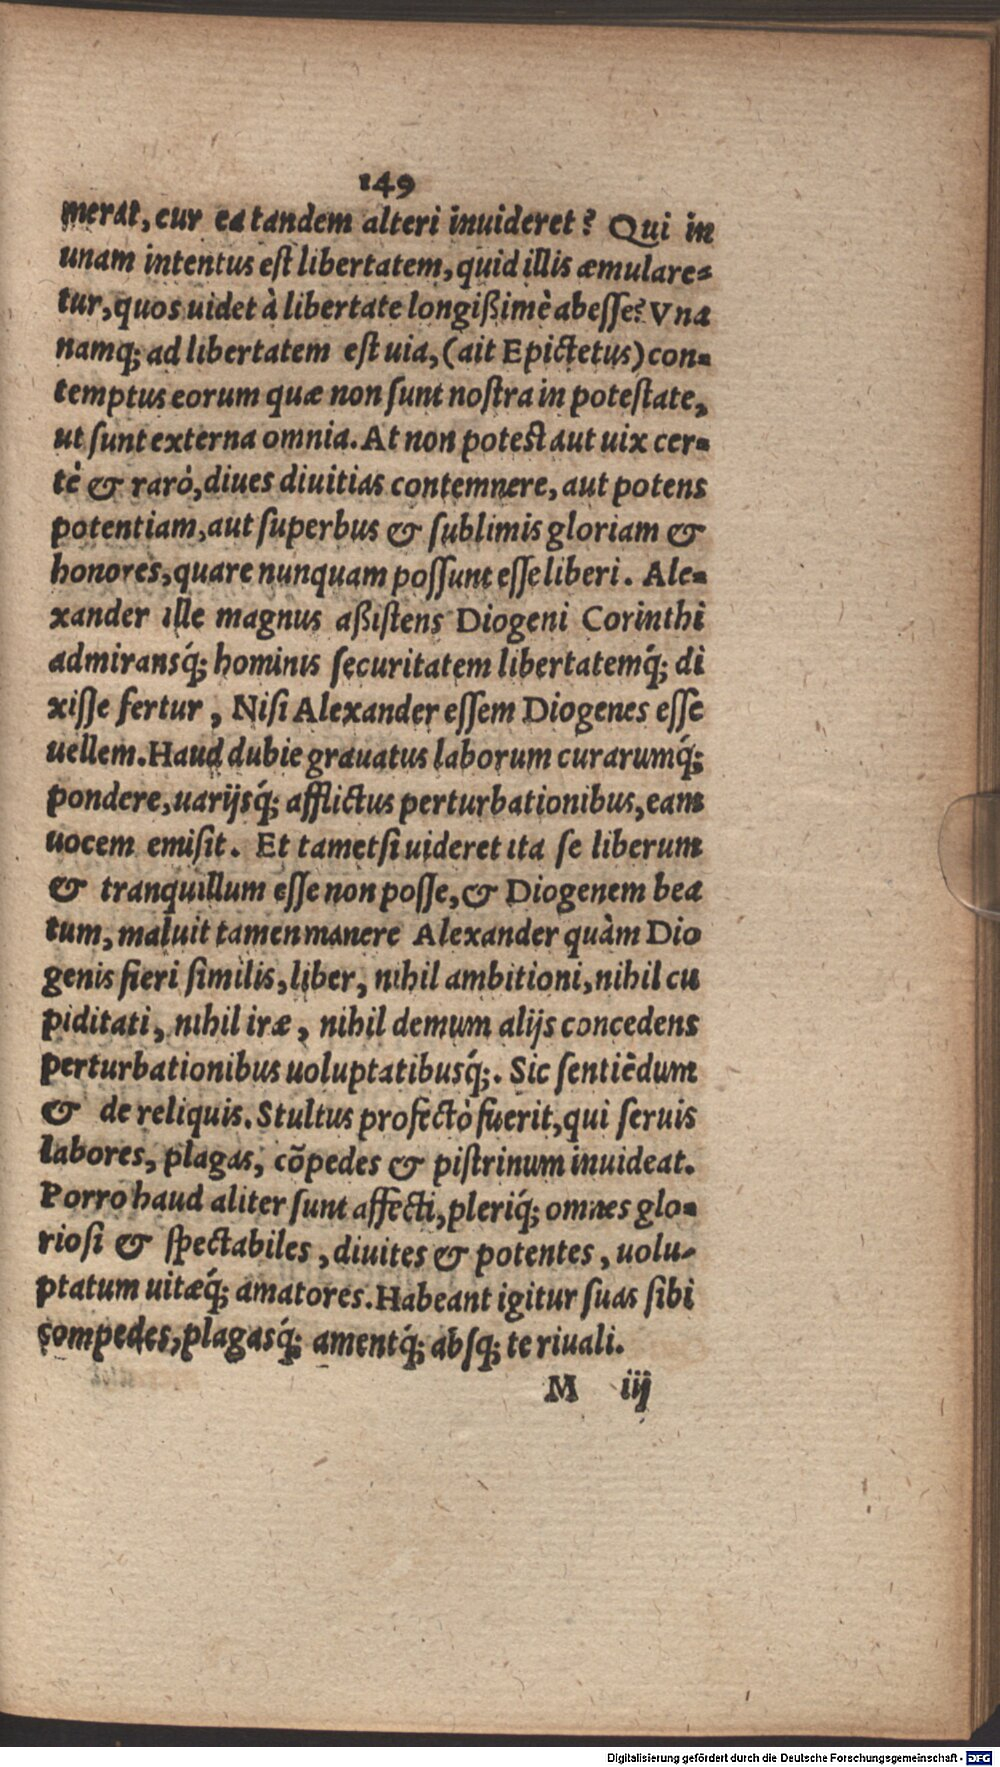 149
merat, cur ea tandem alteri inuideret? Qui in
unam intentus est libertatem, quid illis æmulare=
tur, quos uidet à libertate longißimè abeſſe? Vna
namq́; ad libertatem eſt uia, (ait Epictetus) con=
temptus eorum quæ non ſunt noſtra in poteſtate,
ut ſunt externa omnia. At non poteſt aut uix cer=
tè & rarò, diues diuitias contemnere, aut potens
potentiam, aut ſuperbus & ſublimis gloriam &
honores, quare nunquam poſſunt eſſe liberi. Ale=
xander ille magnus aßiſtens Diogeni Corinthi
admiransq́; hominis ſecuritatem libertatemq́; di
xiſſe fertur, Niſi Alexander eſſem Diogenes eſſe
uellem. Haud dubie grauatus laborum curarumq́;
pondere, uarijsq́; afflictus perturbationibus, eam
uocem emiſit. Et tametſi uideret ita ſe liberum
& tranquillum eſſe non poſſe, & Diogenem bea
tum, maluit tamen manere Alexander quàm Dio
genis fieri ſimilis, liber, nihil ambitioni, nihil cu
piditati, nihil iræ, nihil demum alijs concedens
perturbationibus uoluptatibusq́;. Sic ſentiēdum
& de reliquis. Stultus profectò fuerit, qui ſeruis
labores, plagas, cõpedes & piſtrinum inuideat.
Porro haud aliter ſunt affecti, pleriq́; omnes glo=
rioſi & ſpectabiles, diuites & potentes, uolu=
ptatum uitæq́; amatores. Habeant igitur ſuas ſibi
compedes, plagasq́; amentq́; abſq; te riuali.
M iij
Digitalisierung gefördert durch die Deutsche Forschungsgemeinschaft - DFG